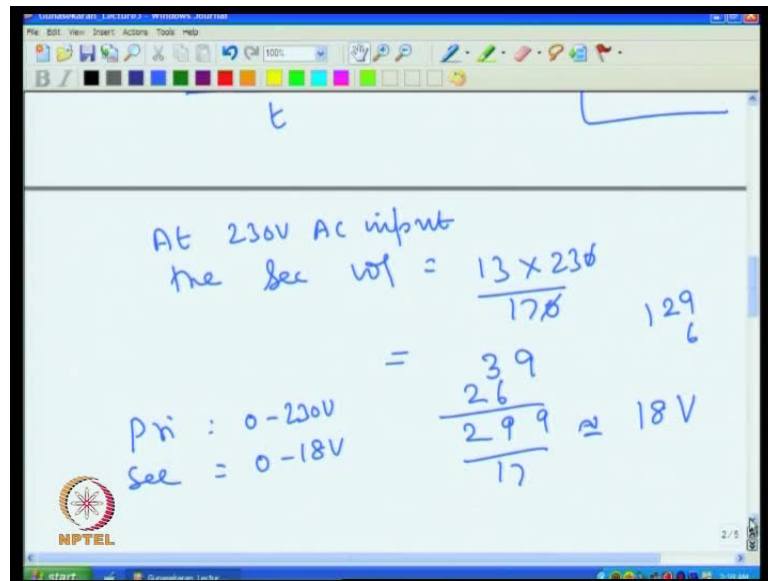 Gunasekaran_Lecture03 - Windows Journal
File Edit View Insert Actions Tools Help
100%
B I
t
At 230V AC input
the Sec vol = 13 x 230
170
129
6
= 39
26
299 ≈ 18V
17
Pri : 0-230V
Sec = 0-18V
NPTEL
2/5
start
Gunasekaran Lectur...
2:59 AM